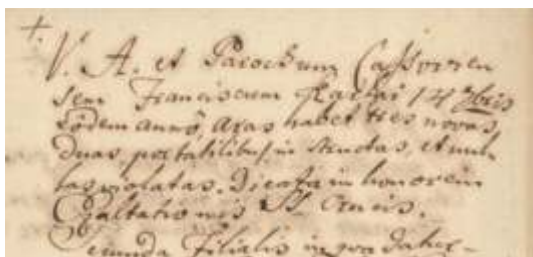 +.
V. A. et Parochum Cassovien
sem Franciscum 14 7bris
eodem annô, Aras habet tres novas,
duas, portatilibus in structas, et unā
violatas. Dicata in honorem
Exaltationis SS. Crucis.
Secunda Filialis in